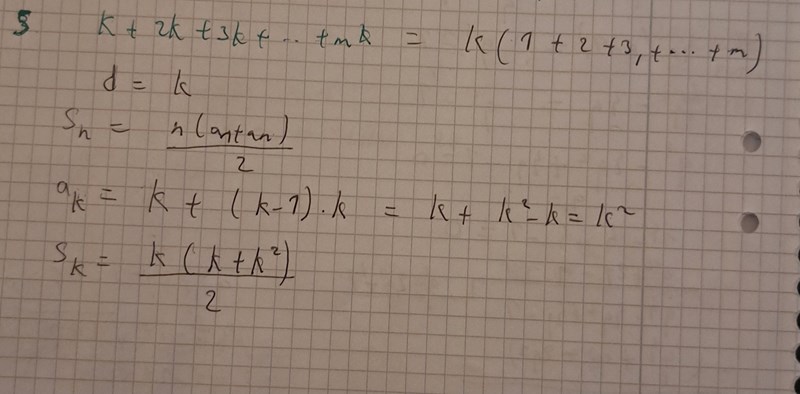 3 k + 2k + 3k + .. + nk = k(1 + 2 + 3, + ... + n)
d = k
Sn = n(an+an) / 2
ak = k + (k-1).k = k + k²-k = k²
Sk = k(k+k²) / 2